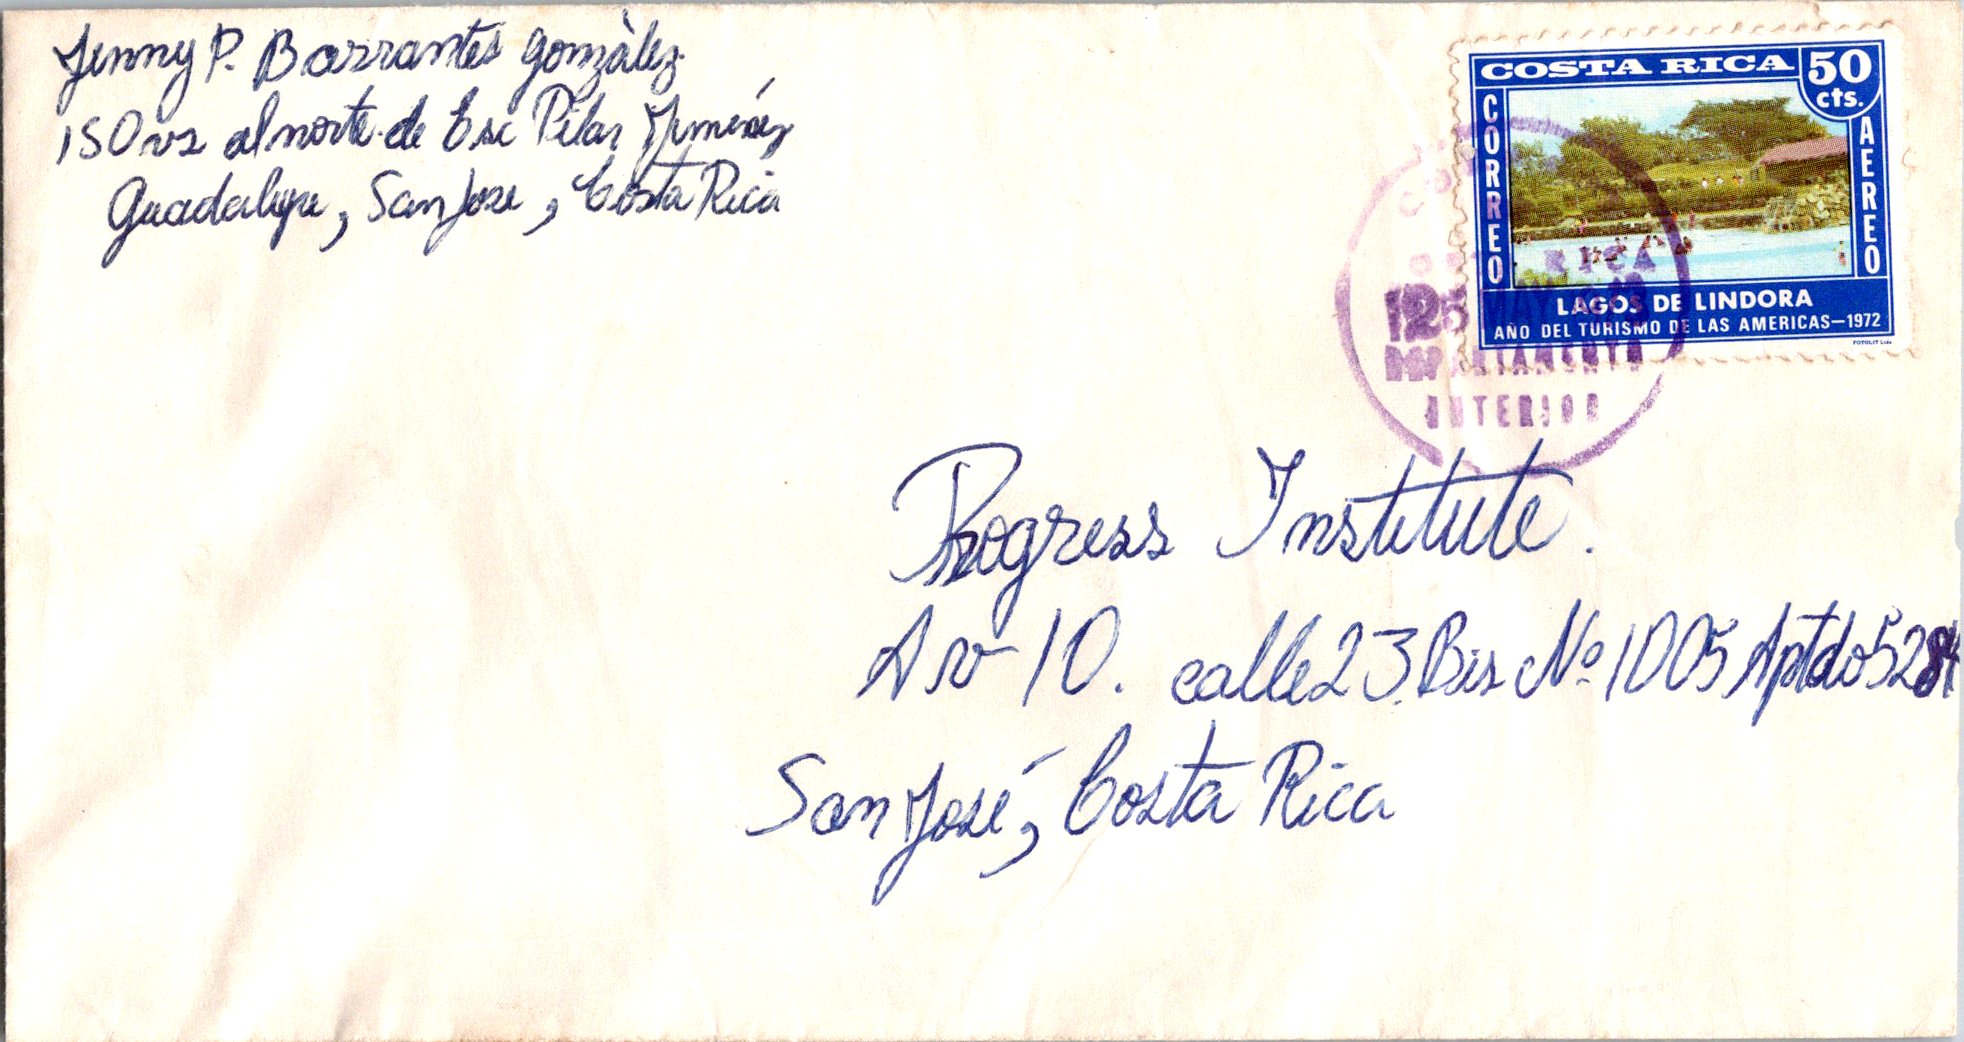 Jenny P. Barrantes Gonzàlez.
150 vs al norte de Esc Pilar Jiménez
Guadalupe, San Jose, Costa Rica
COSTA RICA 50 cts.
CORREO AEREO
LAGOS DE LINDORA
AÑO DEL TURISMO DE LAS AMERICAS—1972
FOTOLIT Ltda
RICA
MAY
DEPARTAMENTO
INTERIOR
Progress Institute.
Av 10. calle 23 Bis Nº 1005 Aptdo 5284
San José, Costa Rica